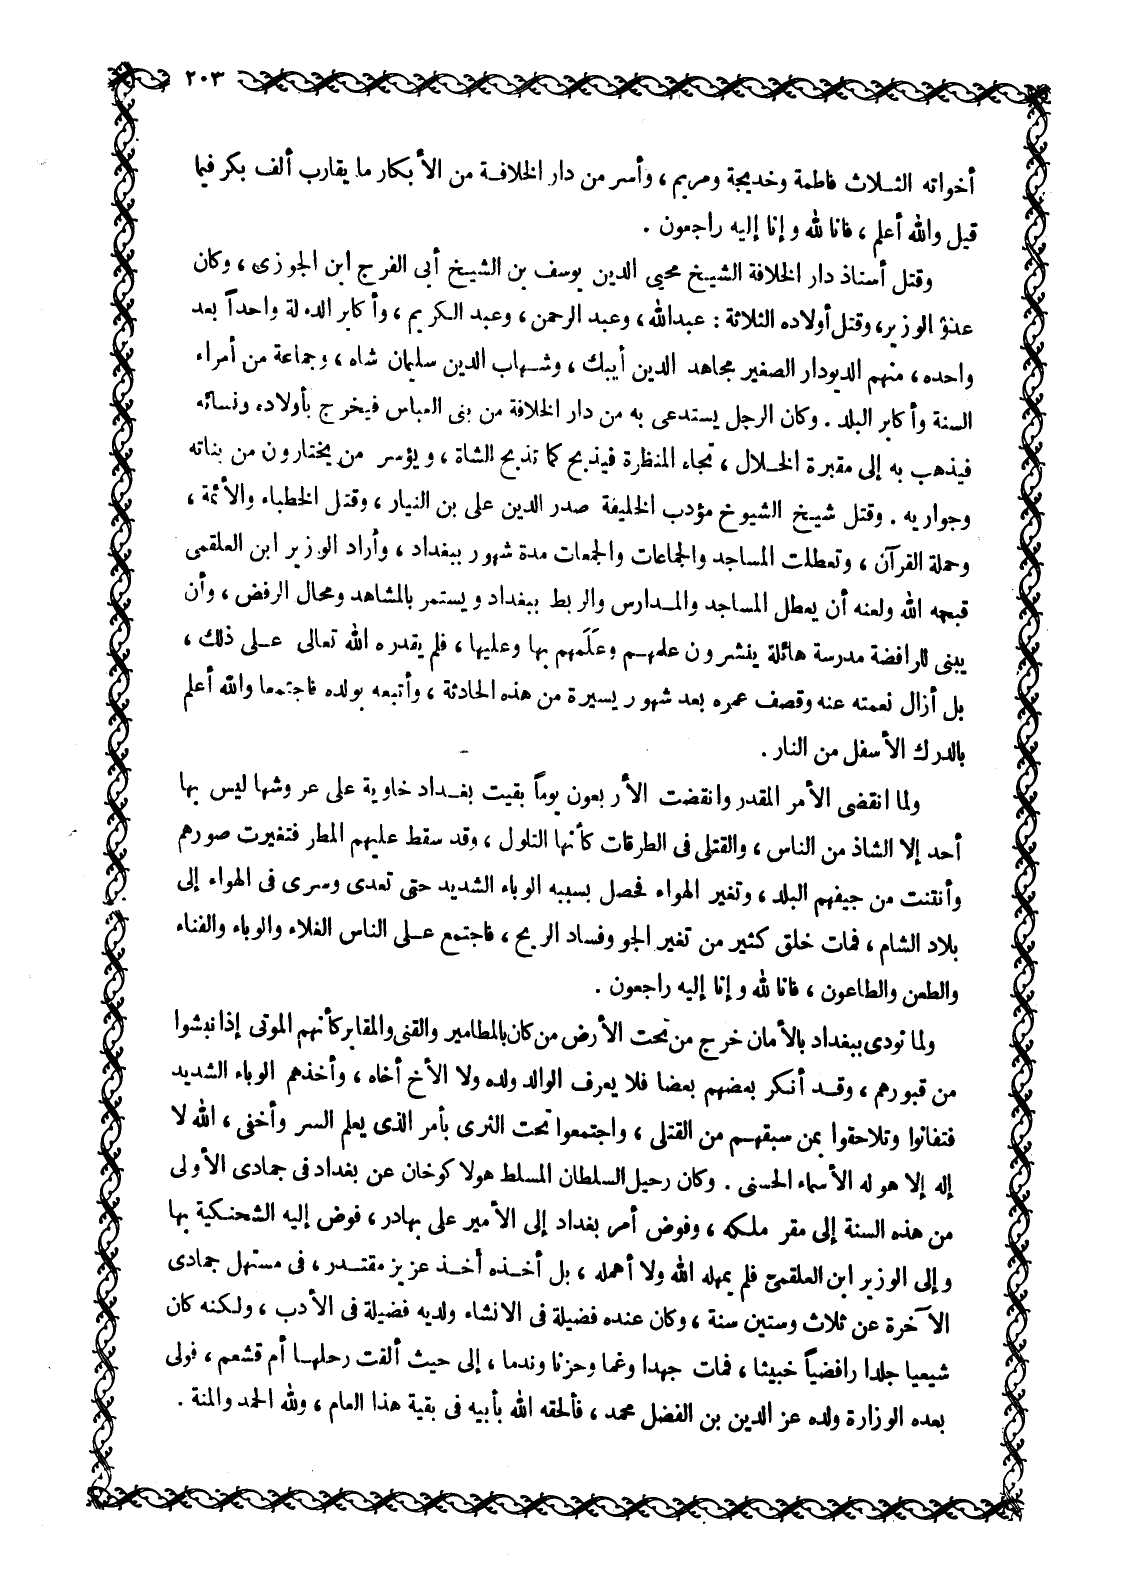 ٢٠٣
أخواته الثلاث فاطمة وخديجة ومريم ، وأسر من دار الخلافة من الأبكار ما يقارب ألف بكر فيما
قيل والله أعلم ، فانا لله و إنا إليه راجعون .
وقتل أستاذ دار الخلافة الشيخ محيى الدين يوسف بن الشيخ أبى الفرج ابن الجوزى ، وكان
عدوّ الوزير، وقتل أولاده الثلاثة : عبدالله ، وعبد الرحمن ، وعبد الكريم ، وأكابر الدولة واحداً بعد
واحده ، منهم الديودار الصغير مجاهد الدين أيبك ، وشهاب الدين سليمان شاه ، وجماعة من أمراء
السنة وأكابر البلد . وكان الرجل يستدعى به من دار الخلافة من بنى العباس فيخرج بأولاده ونسائه
فيذهب به إلى مقبرة الخلال ، تجاه المنظرة فيذبح كما تذبح الشاة ، ويؤسر من يختارون من بناته
وجواريه . وقتل شيخ الشيوخ مؤدب الخليفة صدر الدين على بن النيار ، وقتل الخطباء والأئمة ،
وحملة القرآن ، وتعطلت المساجد والجماعات والجمعات مدة شهور ببغداد ، وأراد الوزير ابن العلقمى
قبحه الله ولعنه أن يعطل المساجد والمدارس والربط ببغداد ويستمر بالمشاهد ومحال الرفض ، وأن
يبنى للرافضة مدرسة هائلة ينشرون علمهم وعَلَمهم بها وعليها ، فلم يقدره الله تعالى على ذلك ،
بل أزال نعمته عنه وقصف عمره بعد شهور يسيرة من هذه الحادثة ، وأتبعه بولده فاجتمعا والله أعلم
بالدرك الأسفل من النار .
ولما انقضى الأمر المقدر وانقضت الأربعون يوماً بقيت بغداد خاوية على عروشها ليس بها
أحد إلا الشاذ من الناس ، والقتلى فى الطرقات كأنها التلول ، وقد سقط عليهم المطر فتغيرت صورهم
وأنتنت من جيفهم البلد ، وتغير الهواء فحصل بسببه الوباء الشديد حتى تعدى وسرى فى الهواء إلى
بلاد الشام ، فمات خلق كثير من تغير الجو وفساد الريح ، فاجتمع على الناس الغلاء والوباء والفناء
والطعن والطاعون ، فانا لله و إنا إليه راجعون .
ولما نودى ببغداد بالأمان خرج من تحت الأرض من كان بالمطامير والقنى والمقابر كأنهم الموتى إذا نبشوا
من قبورهم ، وقد أنكر بعضهم بعضا فلا يعرف الوالد ولده ولا الأخ أخاه ، وأخذهم الوباء الشديد
فتفانوا وتلاحقوا بمن سبقهم من القتلى ، واجتمعوا تحت الثرى بأمر الذى يعلم السر وأخفى ، الله لا
إله إلا هو له الأسماء الحسنى . وكان رحيل السلطان المسلط هولاكوخان عن بغداد فى جمادى الأولى
من هذه السنة إلى مقر ملكه ، وفوض أمر بغداد إلى الأمير على بهادر ، فوض إليه الشحنكية بها
و إلى الوزير ابن العلقمىّ فلم يمهله الله ولا أهمله ، بل أخذه أخذ عزيز مقتدر ، فى مستهل جمادى
الآخرة عن ثلاث وستين سنة ، وكان عنده فضيلة فى الانشاء ولديه فضيلة فى الأدب ، ولكنه كان
شيعيا جلدا رافضياً خبيثا ، فمات جهدا وغما وحزنا وندما ، إلى حيث ألقت رحلها أم قشعم ، فولى
بعده الوزارة ولده عز الدين بن الفضل محمد ، فألحقه الله بأبيه فى بقية هذا العام ، ولله الحمد والمنة .